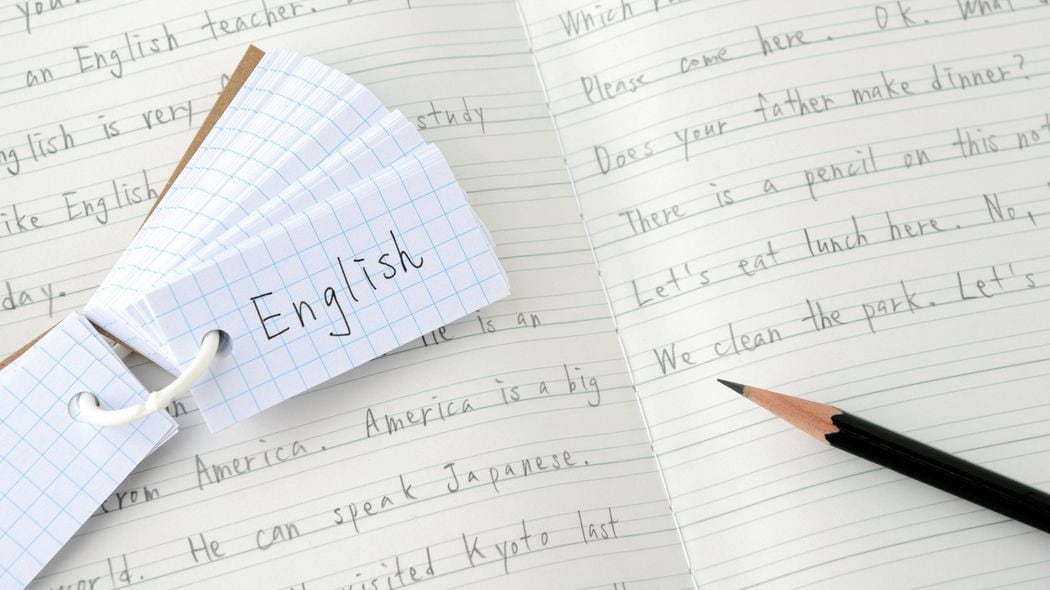 you
an English teacher.
English is very
study
like English
day.
English
He is an
from America. America is a big
world. He can speak Japanese.
visited Kyoto last
Which
Please come here. OK. What
Does your father make dinner?
There is a pencil on this
Let's eat lunch here. No,
We clean the park. Let's